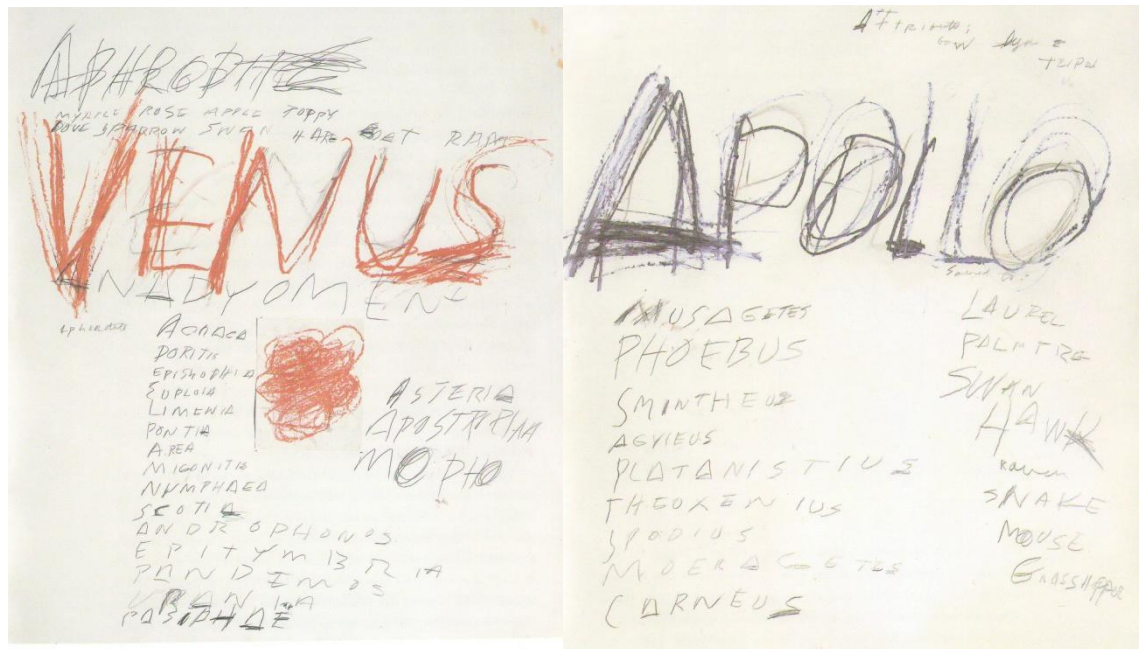 APHRODITE
MYRTLE ROSE APPLE POPPY
DOVE SPARROW SWAN HARE GOAT RAM
VENUS
ANADYOMENE
ACRAEA
DORITIS
EPISTROPHIA
EUPLOIA
LIMENIA
PONTIA
AREA
MIGONITIS
NYMPHAEA
SCOTIA
ANDROPHONOS
EPITYMBRIA
PANDEMOS
URANIA
PASIPHAE
ASTERIA
APOSTROPHIA
MORPHO
Attributes:
BOW Lyre
TRIPOD
APOLLO
MUSAGETES
PHOEBUS
SMINTHEUS
AGYIEUS
PLATANISTIUS
THEOXENIUS
SPODIUS
MOERAGETES
CARNEUS
Sacred
LAUREL
PALM TREE
SWAN
HAWK
Raven
SNAKE
MOUSE
GRASSHOPPER